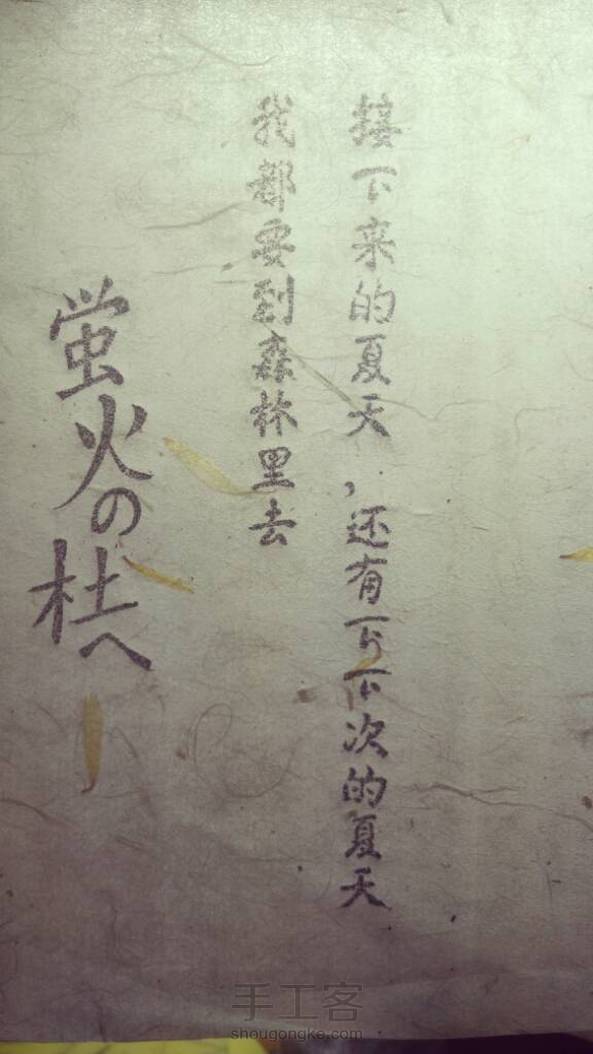 接下来的夏天，还有下下次的夏天
我都要到森林里去
蛍火の杜へ
手工客
shougongke.com